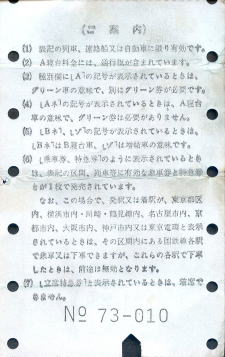 (ご案内)
(1) 表記の列車、連絡船又は自動車に限り有効です。
(2) A寝台料金には、通行税が含まれています。
(3) 種別欄に「A」の記号が表示されているときは、
グリーン車の意味で、別にグリーン券が必要です。
(4) 「Aネ」の記号が表示されているときは、A寝台
車の意味で、グリーン券は必要ありません。
(5) 「Bネ」、「ゾ」の記号が表示されているときは、
「Bネ」はB寝台車、「ゾ」は増結車の意味です。
(6) 「乗車券、特急券」のように表示されているとき
は、表記の区間、列車等に有効な乗車券と特急券
とが1枚で発売されています。
なお、この場合で、発駅又は着駅が、東京都区
内、横浜市内・川崎・鶴見線内、名古屋市内、京
都市内、大阪市内、神戸市内又は東京電環と表示
されているときは、その区間内にある国鉄線各駅
で乗車又は下車できますが、これらの各駅で下車
したときは、前途は無効となります。
(7) 「立席特急券」と表示されているときは、着席で
きません。
№ 73-010